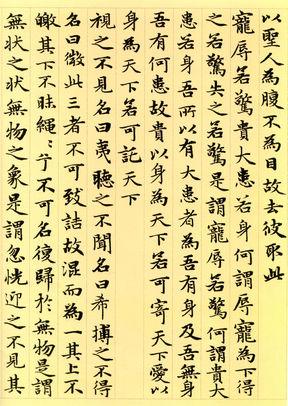 以聖人為腹不為目故去彼取此
寵辱若驚貴大患若身何謂辱寵為下得
之若驚失之若驚是謂寵辱若驚何謂貴大
患若身吾所以有大患者為吾有身及吾無身
吾有何患故貴以身為天下若可寄天下愛以
身為天下若可託天下
視之不見名曰夷聽之不聞名曰希搏之不得
名曰微此三者不可致詰故混而為一其上不
皦其下不昧繩〻兮不可名復歸於無物是謂
無狀之狀無物之象是謂忽恍迎之不見其